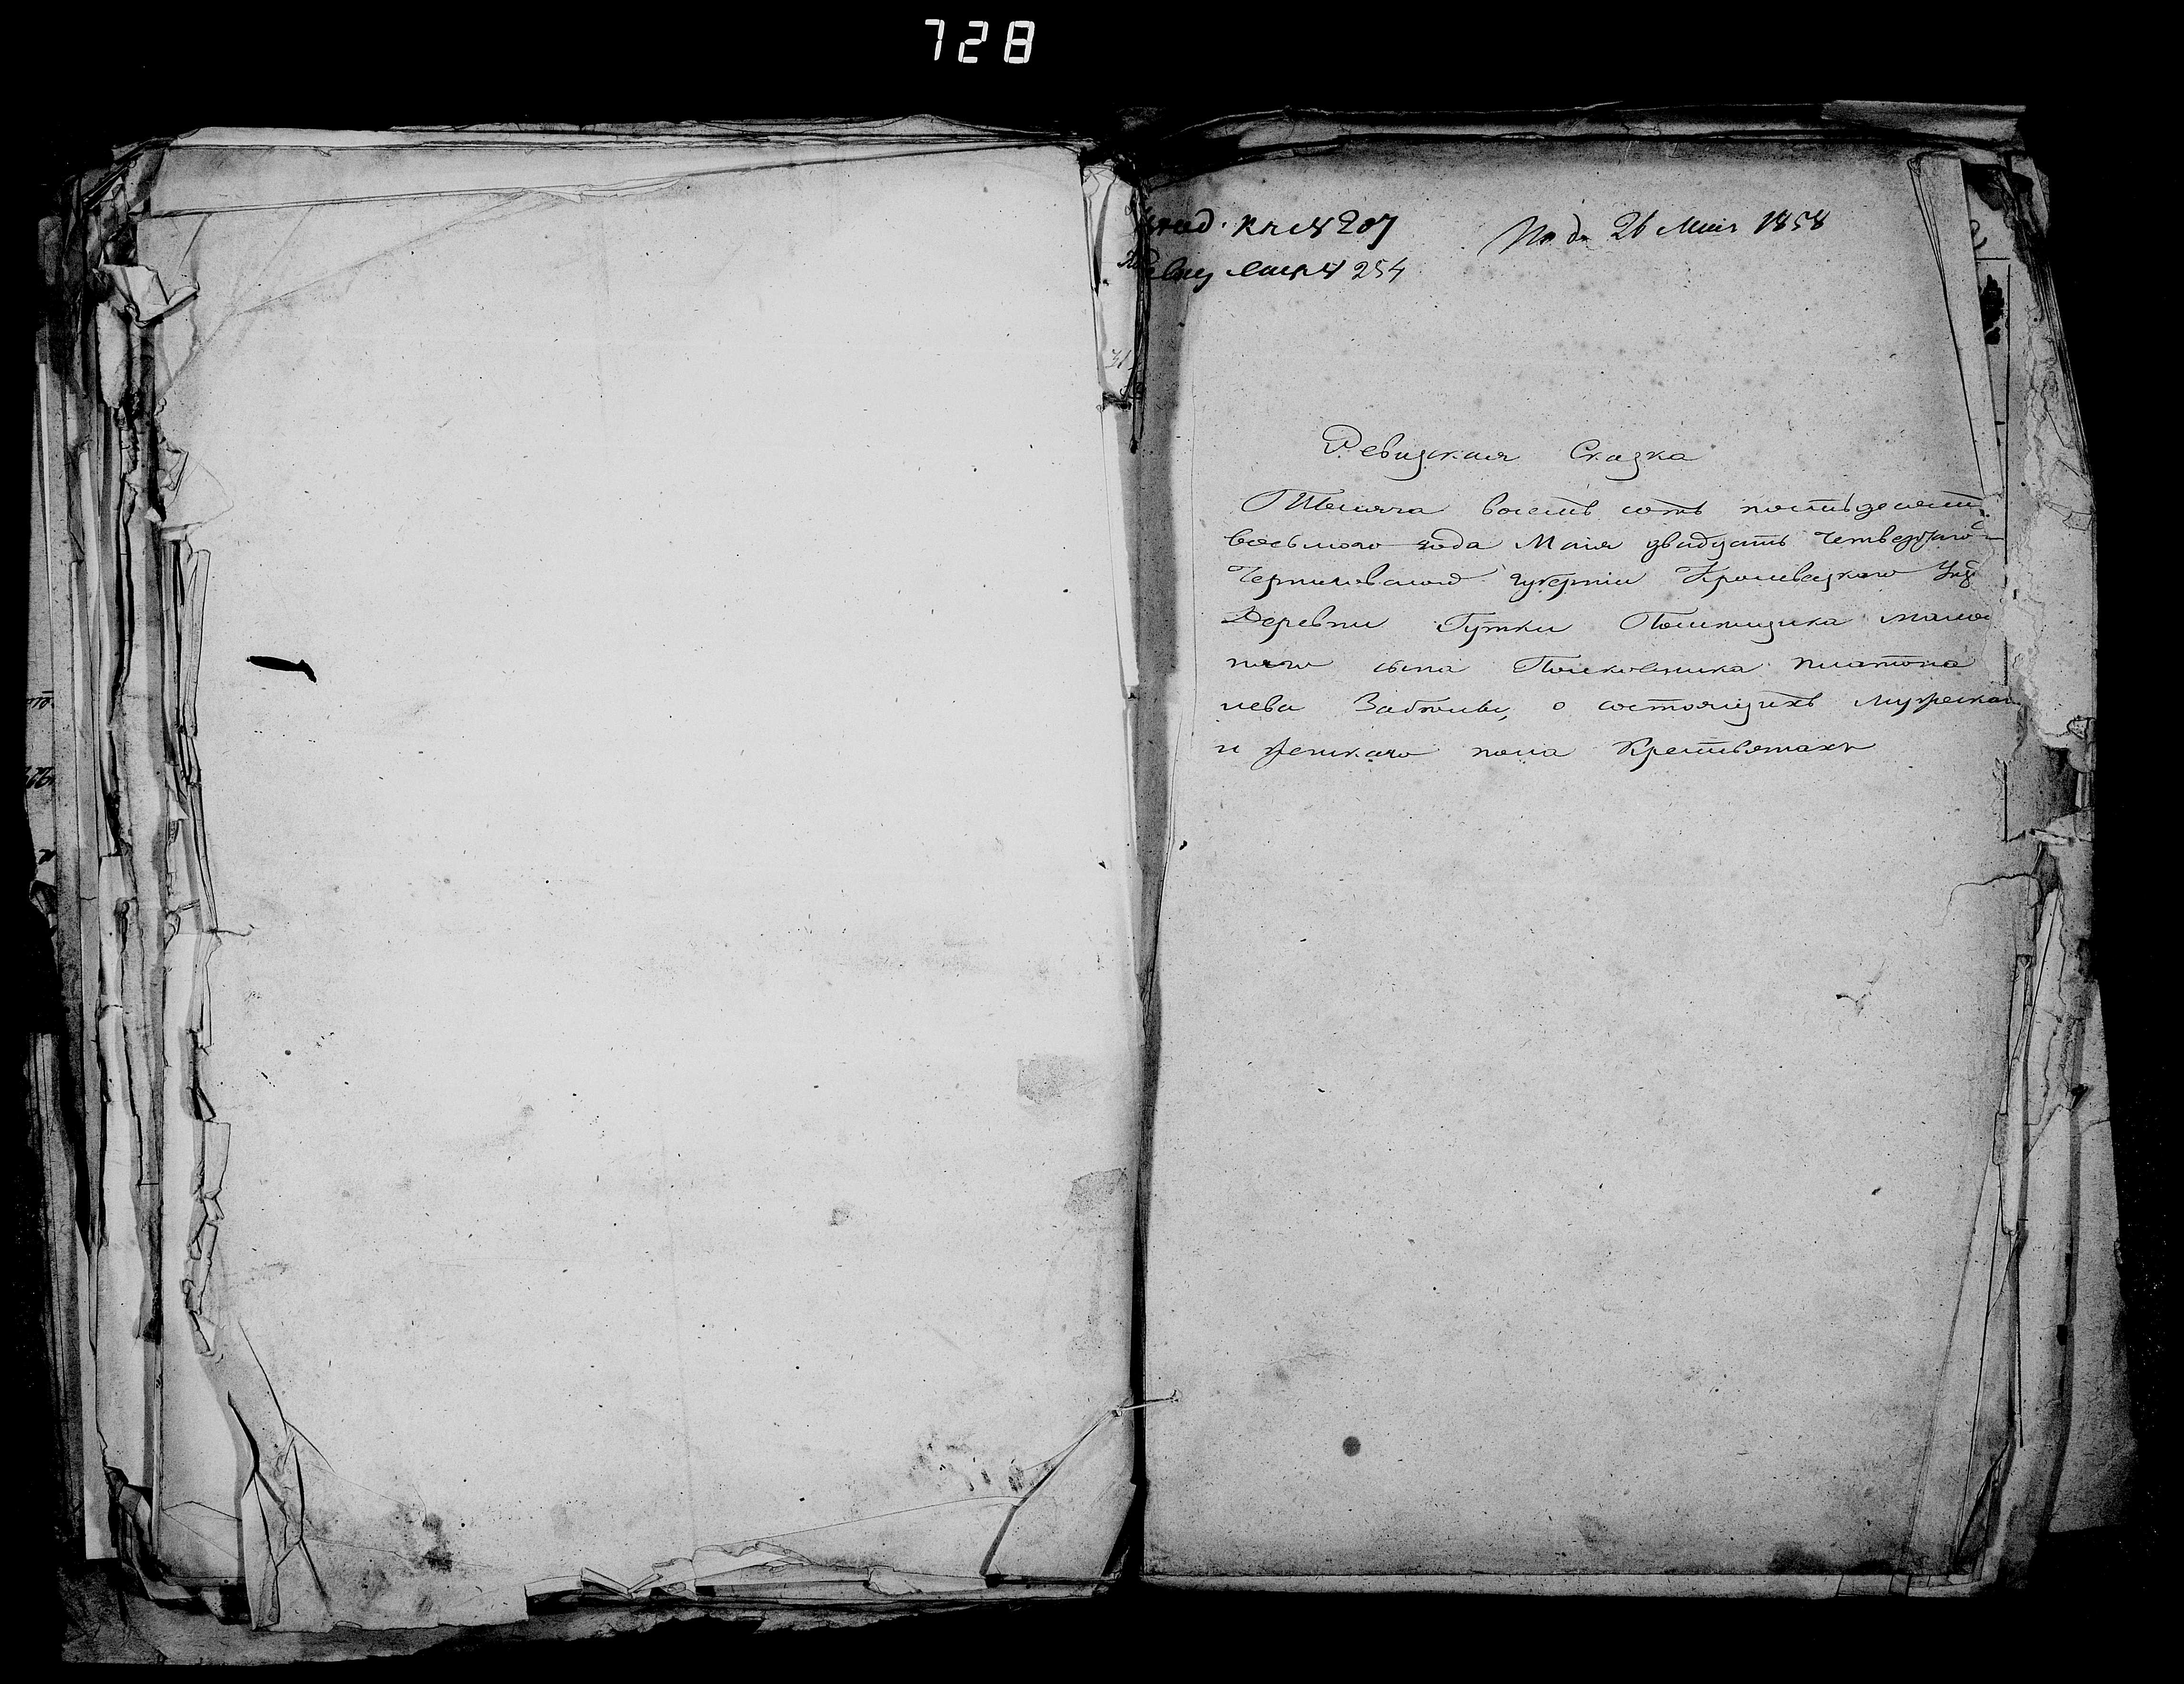 728
207
Под. 26 Маия 1858
254
Ревизская Сказка
Тысяча восемь сотъ пятьдесятъ
восьмого года Маия двадцать четвертого
Черниговской губернии Кролевецкого Уез
Деревни Гутки Помещика малол
няго сына Полковника Платона
о состоящихъ мужеска
и женскаго пола Крестьянахъ